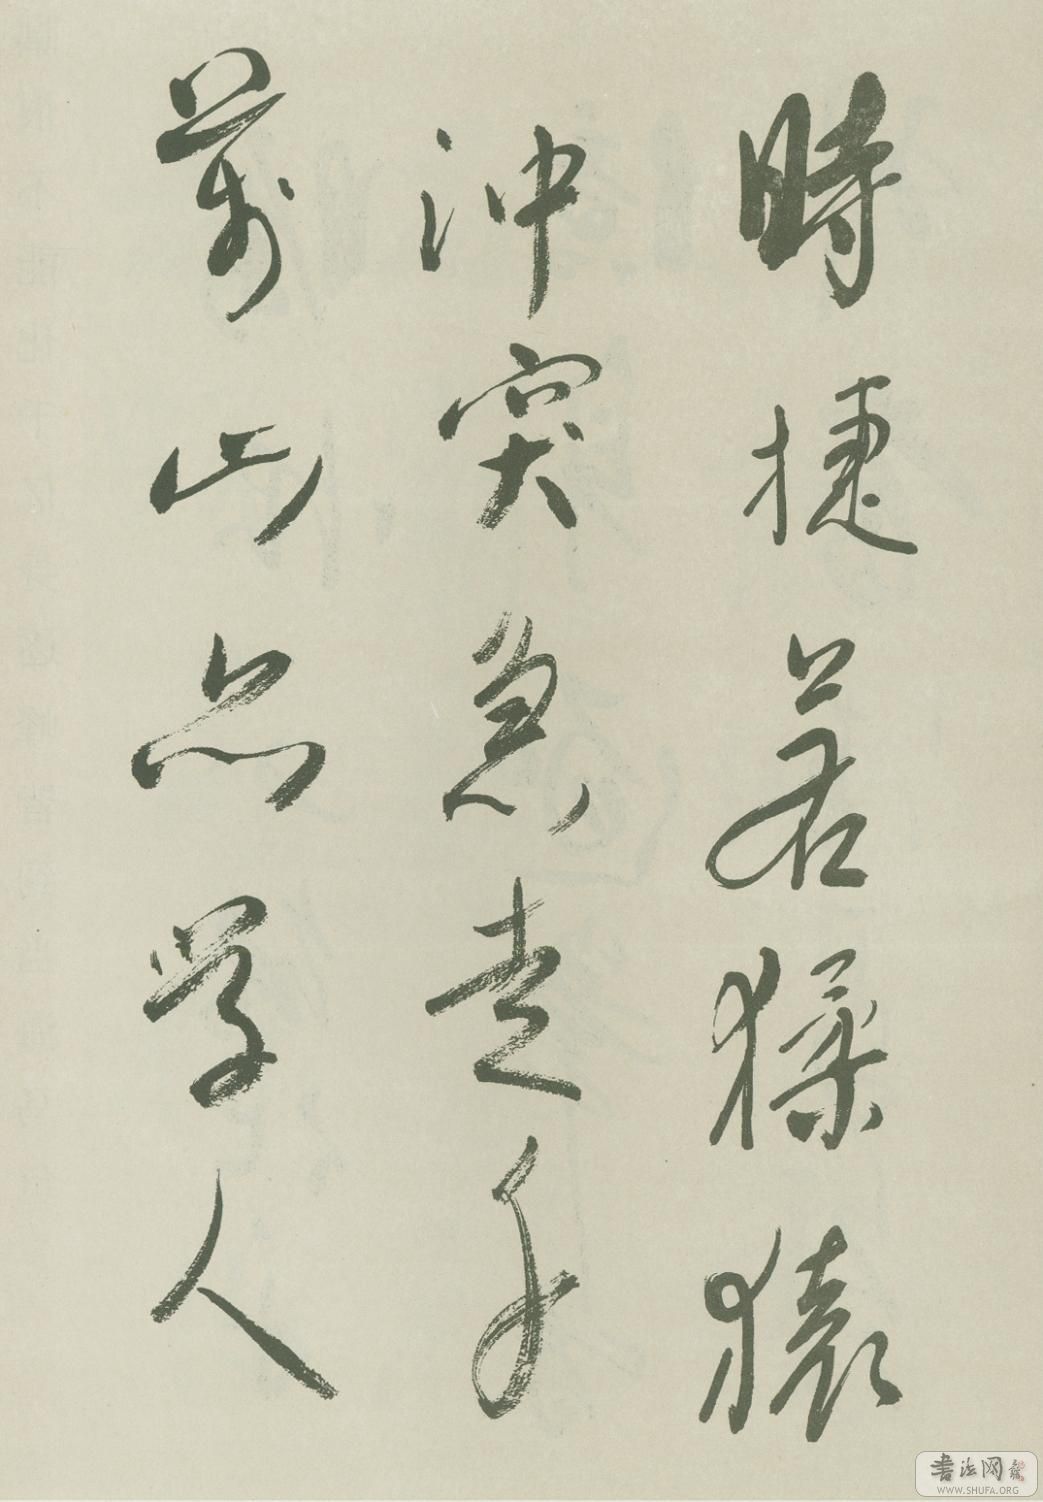 時捷若猱猿
沖突急走千
萬山亦学人
書法网
WWW.SHUFA.ORG